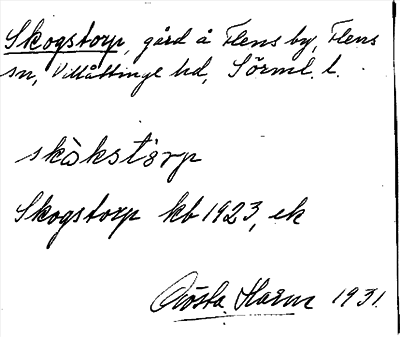 Skogstorp, gård å Flens by, Flens
sn, Villåttinge hd, Sörml. l.
skòkstòrp
Skogstorp kb 1923, ek
Gösta 1931.